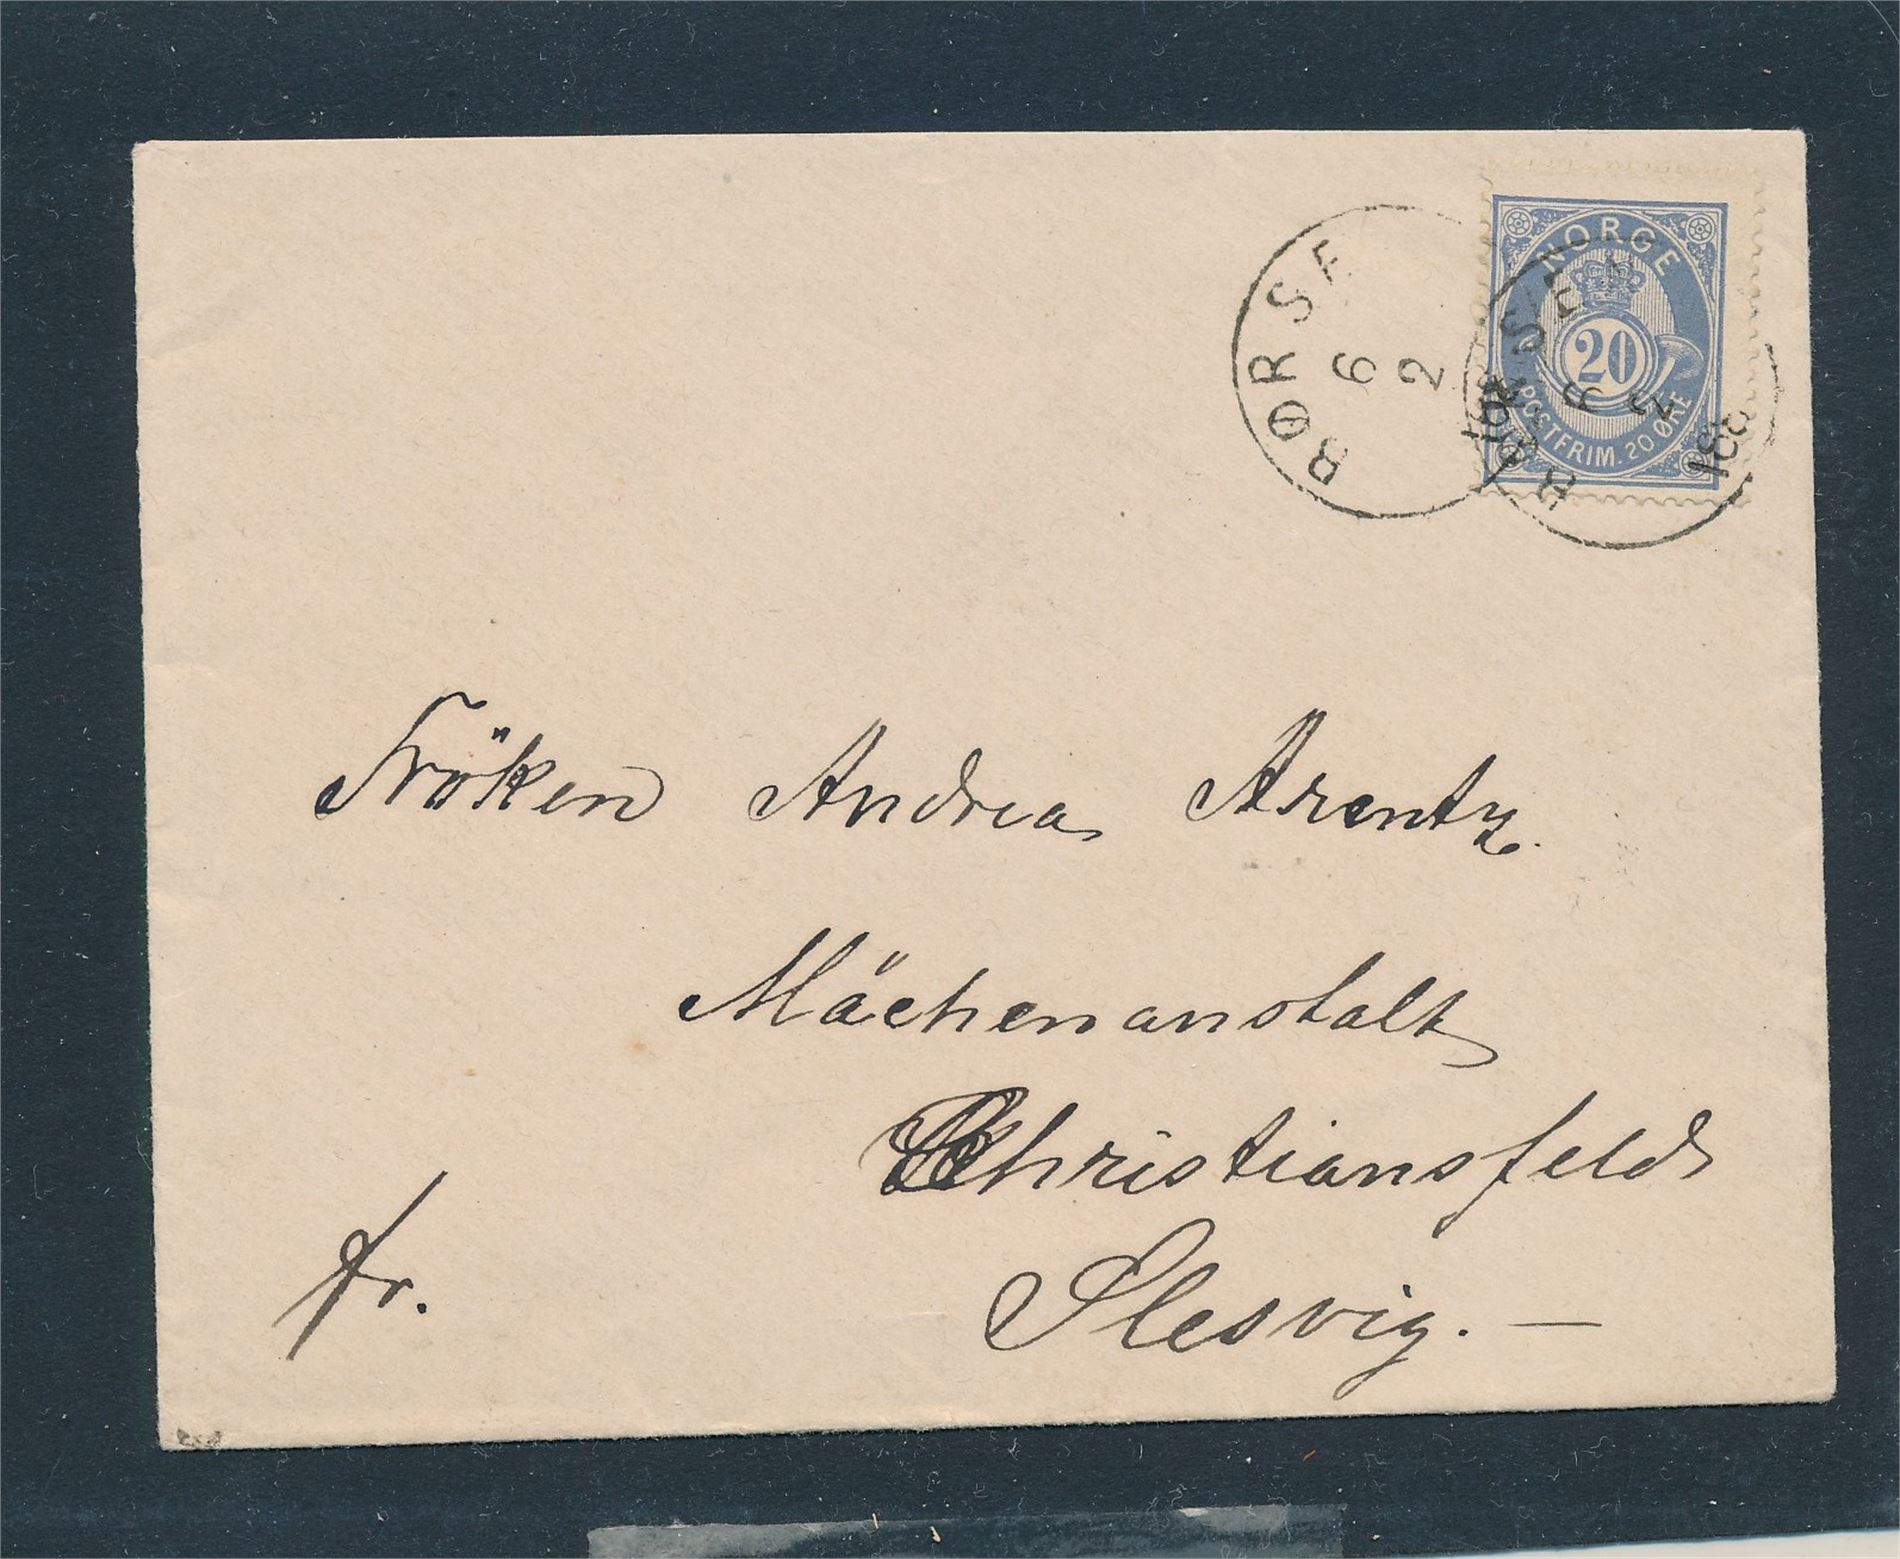 BØRSE
6
2
NORGE
20
POSTFRIM. 20 ØRE
Fröken Andrea Arentz.
Mächenanstalt
Christiansfeld
Slesvig. —
fr.